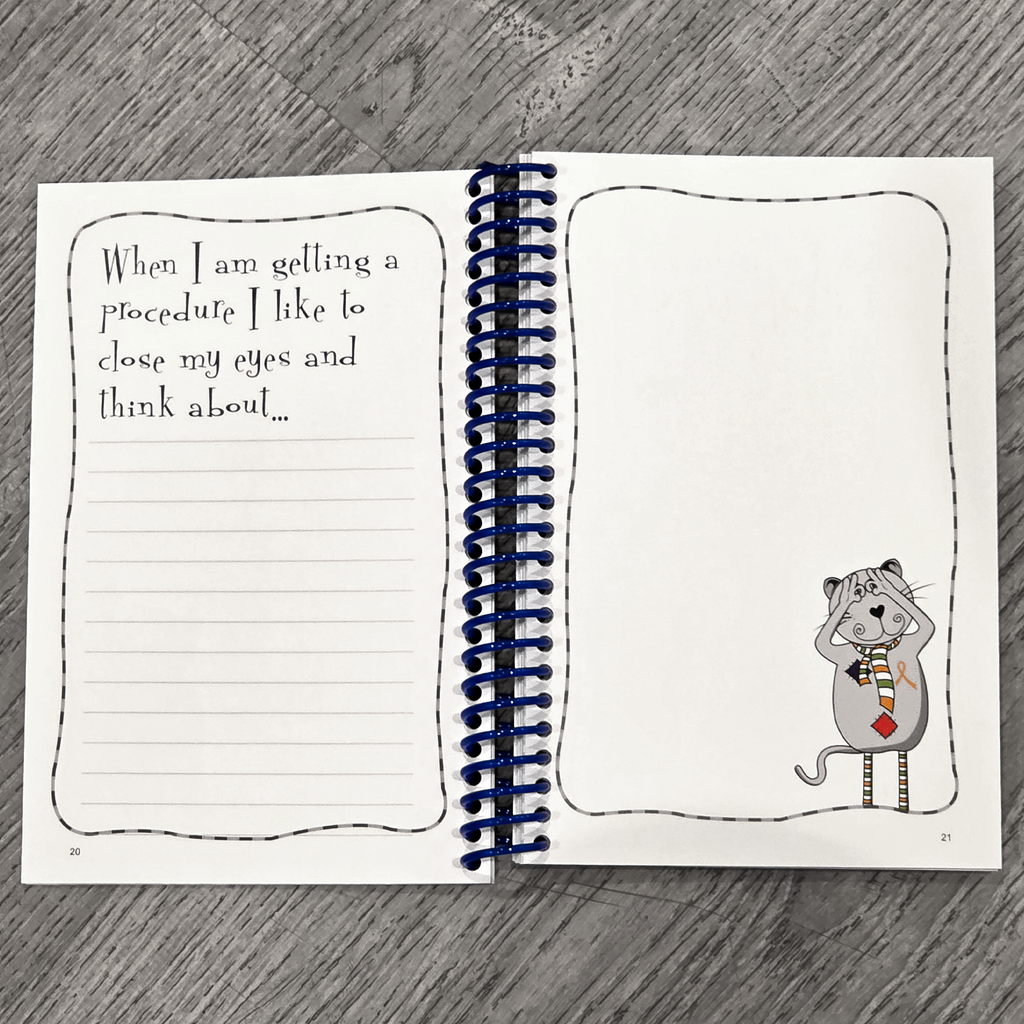 When I am getting a
procedure I like to
close my eyes and
think about...
20
21